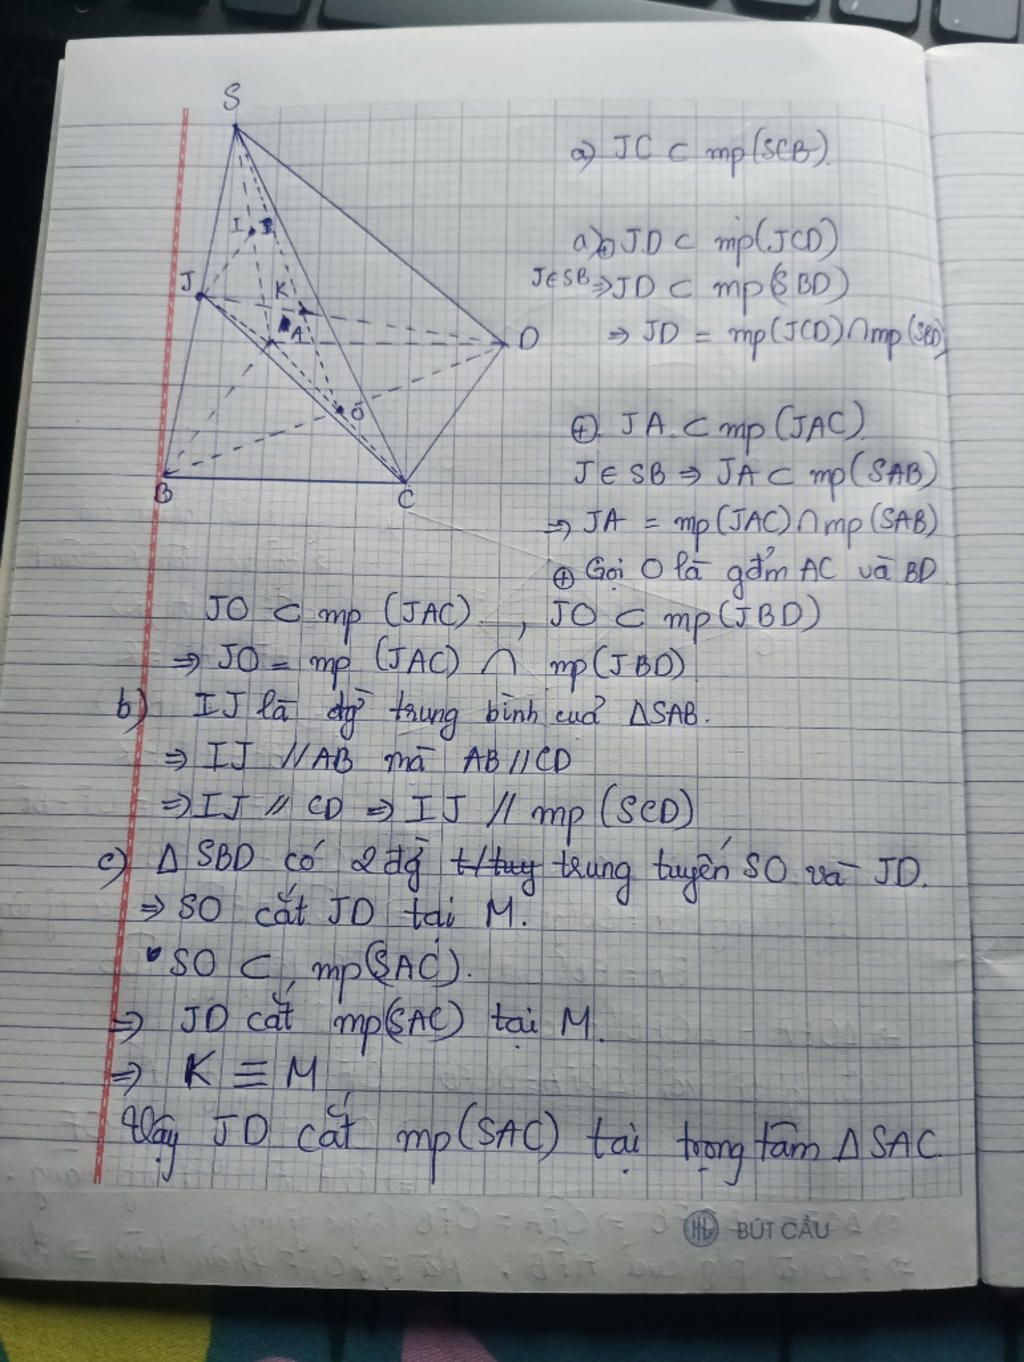 S
a) JC ⊂ mp(SCB).
I
J
K
A
D
O
B
C
a) ⊕ JD ⊂ mp(JCD)
J∈SB ⇒ JD ⊂ mp(SBD)
⇒ JD = mp(JCD)∩mp(SBD)
⊕. JA ⊂ mp(JAC).
J∈ SB ⇒ JA ⊂ mp(SAB)
⇒ JA = mp(JAC)∩mp(SAB)
⊕ Gọi O là gđm AC và BD
JO ⊂ mp (JAC) , JO ⊂ mp(JBD)
⇒ JO = mp (JAC) ∩ mp(JBD)
b) IJ là trung bình của ΔSAB.
⇒ IJ // AB mà AB//CD
⇒ IJ // CD ⇒ IJ // mp (SCD)
c) Δ SBD có 2 trung tuyến SO và JD.
⇒ SO cắt JD tại M.
SO ⊂ mp(SAC).
⇒ JD cắt mp(SAC) tại M.
⇒ K ≡ M
Vậy JD cắt mp(SAC) tại trọng tâm Δ SAC.
BÚT CẦU